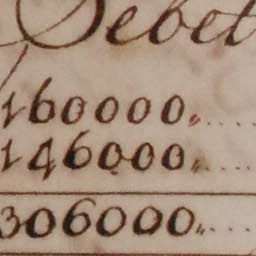 Debet
160000„.....
146000„.....
306000„....